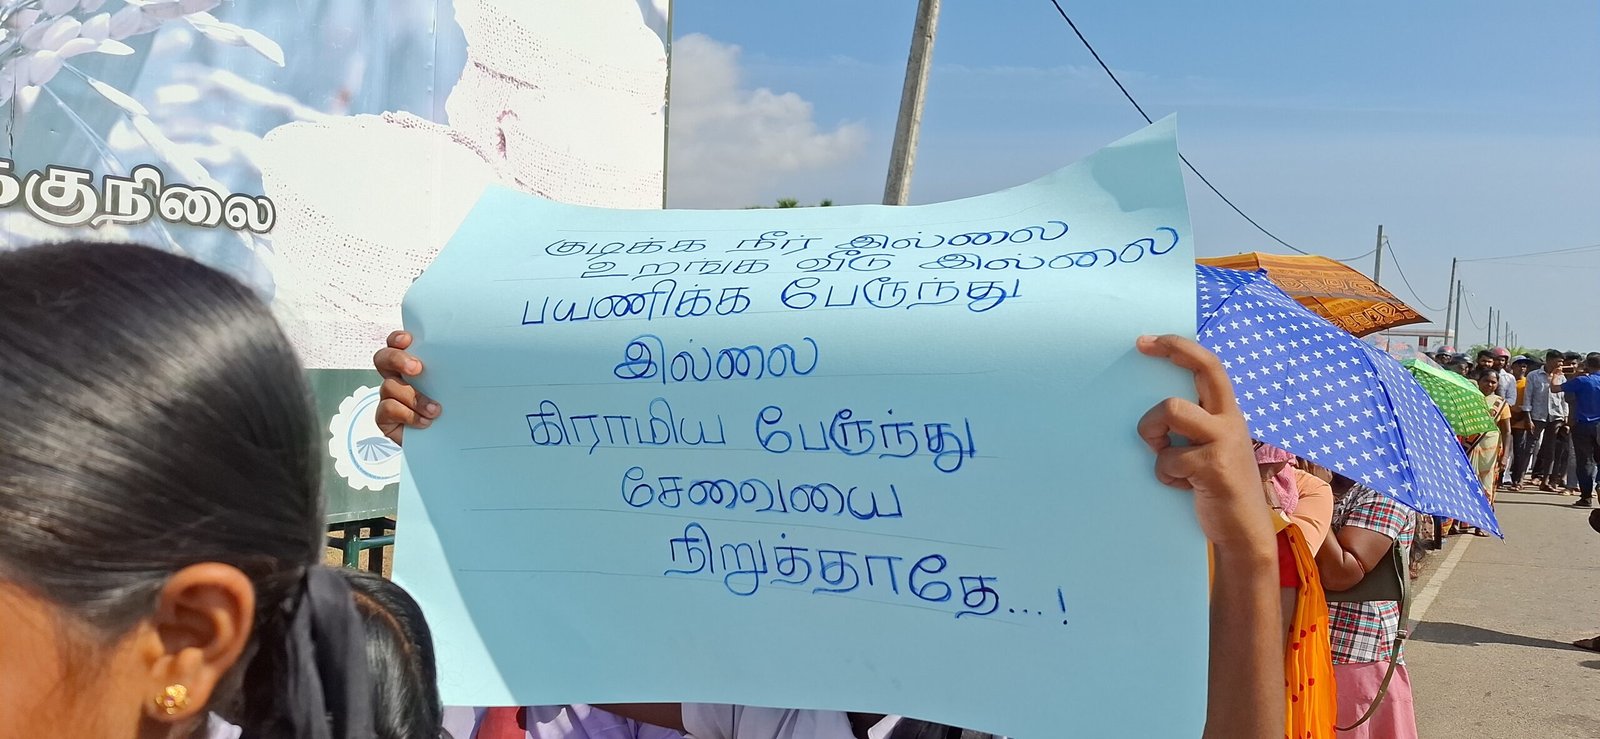 க்குநிலை
குடிக்க நீர் இல்லை
உறங்க வீடு இல்லை
பயணிக்க பேரூந்து
இல்லை
கிராமிய பேரூந்து
சேவையை
நிறுத்தாதே...!